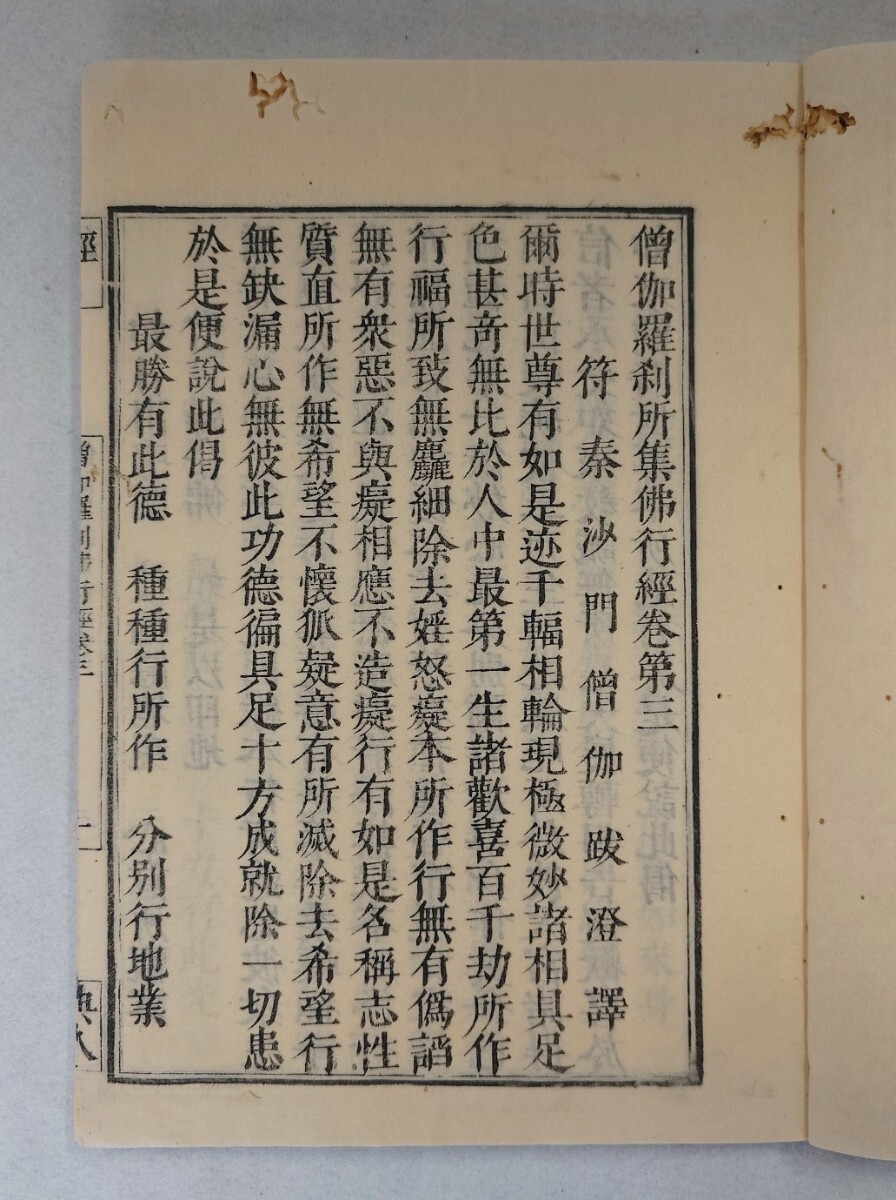 僧伽羅刹所集佛行經卷第三
符秦沙門僧伽跋澄譯
爾時世尊有如是迹千輻相輪現極微妙諸相具足
色甚奇無比於人中最第一生諸歡喜百千劫所作
行福所致無麤細除去婬怒癡本所作行無有僞諂
無有衆惡不與癡相應不造癡行有如是名稱志性
質直所作無希望不懷狐疑意有所滅除去希望行
無缺漏心無彼此功德徧具足十方成就除一切患
於是便說此偈
最勝有此德　種種行所作　分別行地業
經
僧伽羅刹佛行經卷三
一
典八